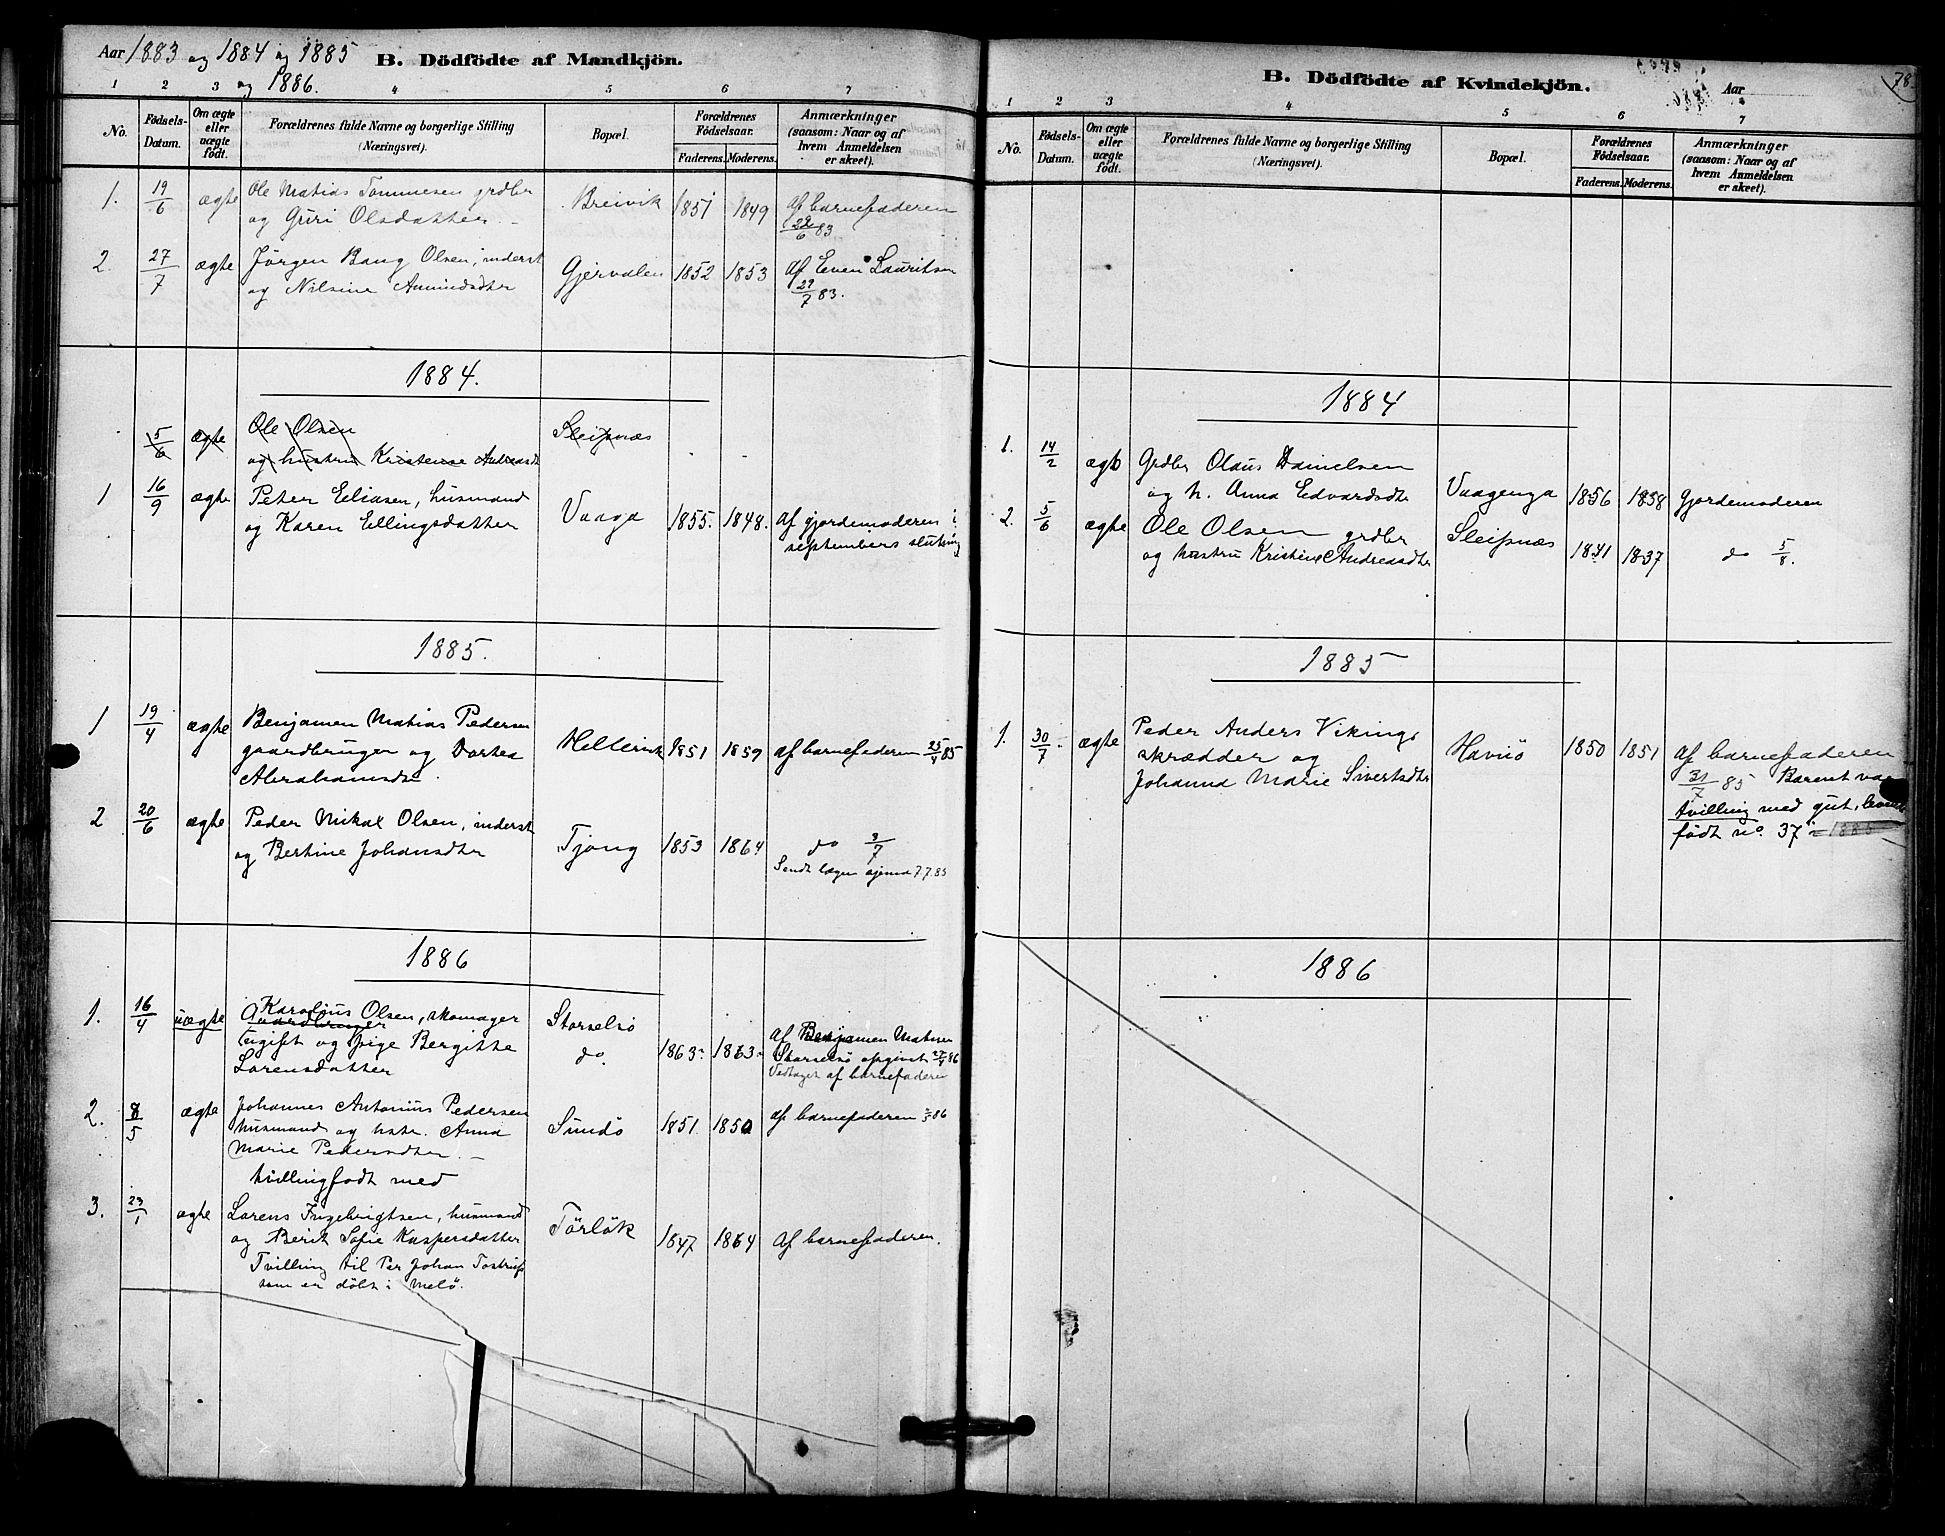 Aar 1883 og 1884 og 1885
og 1886.
B. Dödfödte af Mandkjön.
1 2 3 4 5 6 7
No.
Födsels-Datum.
Om ægte eller uægte födt.
Forældrenes fulde Navne og borgerlige Stilling
(Næringsvei).
Bopæl.
Forældrenes Födselsaar.
Faderens. Moderens.
Anmærkninger
(saasom: Naar og af
hvem Anmeldelsen
er skeet).
1. 19/6 ægte Ole Matias Tommesen grdbr Breivik 1851 1849 af barnefaderen
og Guri Olsdatter 22/6 83
2. 27/7 ægte Jörgen Bang Olsen, inderst Gjervalen 1852 1853 af Even Lauritsen
og Nilsine Amundsdter 29/7 83.
1884.
5/6 ægte Ole Olsen Sleipnæs
og hustru Kristense Andreasdt
1 16/9 ægte Peter Eliasen, husmand Vaaga 1855. 1848. af gjordemoderen i
og Karen Ellingsdatter septembers slutning
1885.
1 19/4 ægte Benjamen Matias Pedersen
gaardbruger og Dortea Hellervik 1851 1859 af barnefaderen 25/4 85
Abrahamsdtr.
2 20/6 ægte Peder Mikal Olsen, inderst
og Bertine Johansdter Tjong 1853 1864 do 3/7
Sendt lægen 7.7.85
1886
1. 16/4 uægte Karolius Olsen, skomager Storselsö
Gaardbruger
ugift og pige Bergitte do. 1863 1863 af Benjamen Matisen
Lorensdatter Storselsö opgivet 27/4 86
Vedtaget af barnefaderen
2. 8/5 ægte Johannes Antonius Pedersen
husmand og hstr. Anna Sundö 1851 1850 af barnefaderen 86
Marie Pedersdter.
tvillingfodt med
3. 23/1 ægte Lorens Ingebrigtsen, husmand Törlök 1847 1864 af barnefaderen.
og Berit Sofie Kaspersdatter
Tvilling til Per Johan Tostrup
som er döbt i Melö.
B. Dödfödte af Kvindekjön.
Aar
78
1 2 3 4 5 6 7
No.
Födsels-Datum.
Om ægte eller uægte födt.
Forældrenes fulde Navne og borgerlige Stilling
(Næringsvei).
Bopæl.
Forældrenes Födselsaar.
Faderens. Moderens.
Anmærkninger
(saasom: Naar og af
hvem Anmeldelsen
er skeet).
1884
1. 14/2 ægte Grdbr Olaus Danielsen
og h. Anna Edvardsdtr Vaagenga 1856 1858 Gjordemoderen
2. 5/6 ægte Ole Olsen grdbr Sleipnæs
og hustru Kristine Andreasdtr 1841 1837 do 5/8.
1885
1. 30/7 ægte Peder Anders Viking,
skrædder og Havnö 1850 1851 af barnefaderen
Johanna Marie Sivertsdtr 31/7 85 Barnet var
tvilling med gut, levende
födt no. 37 i 1885
1886